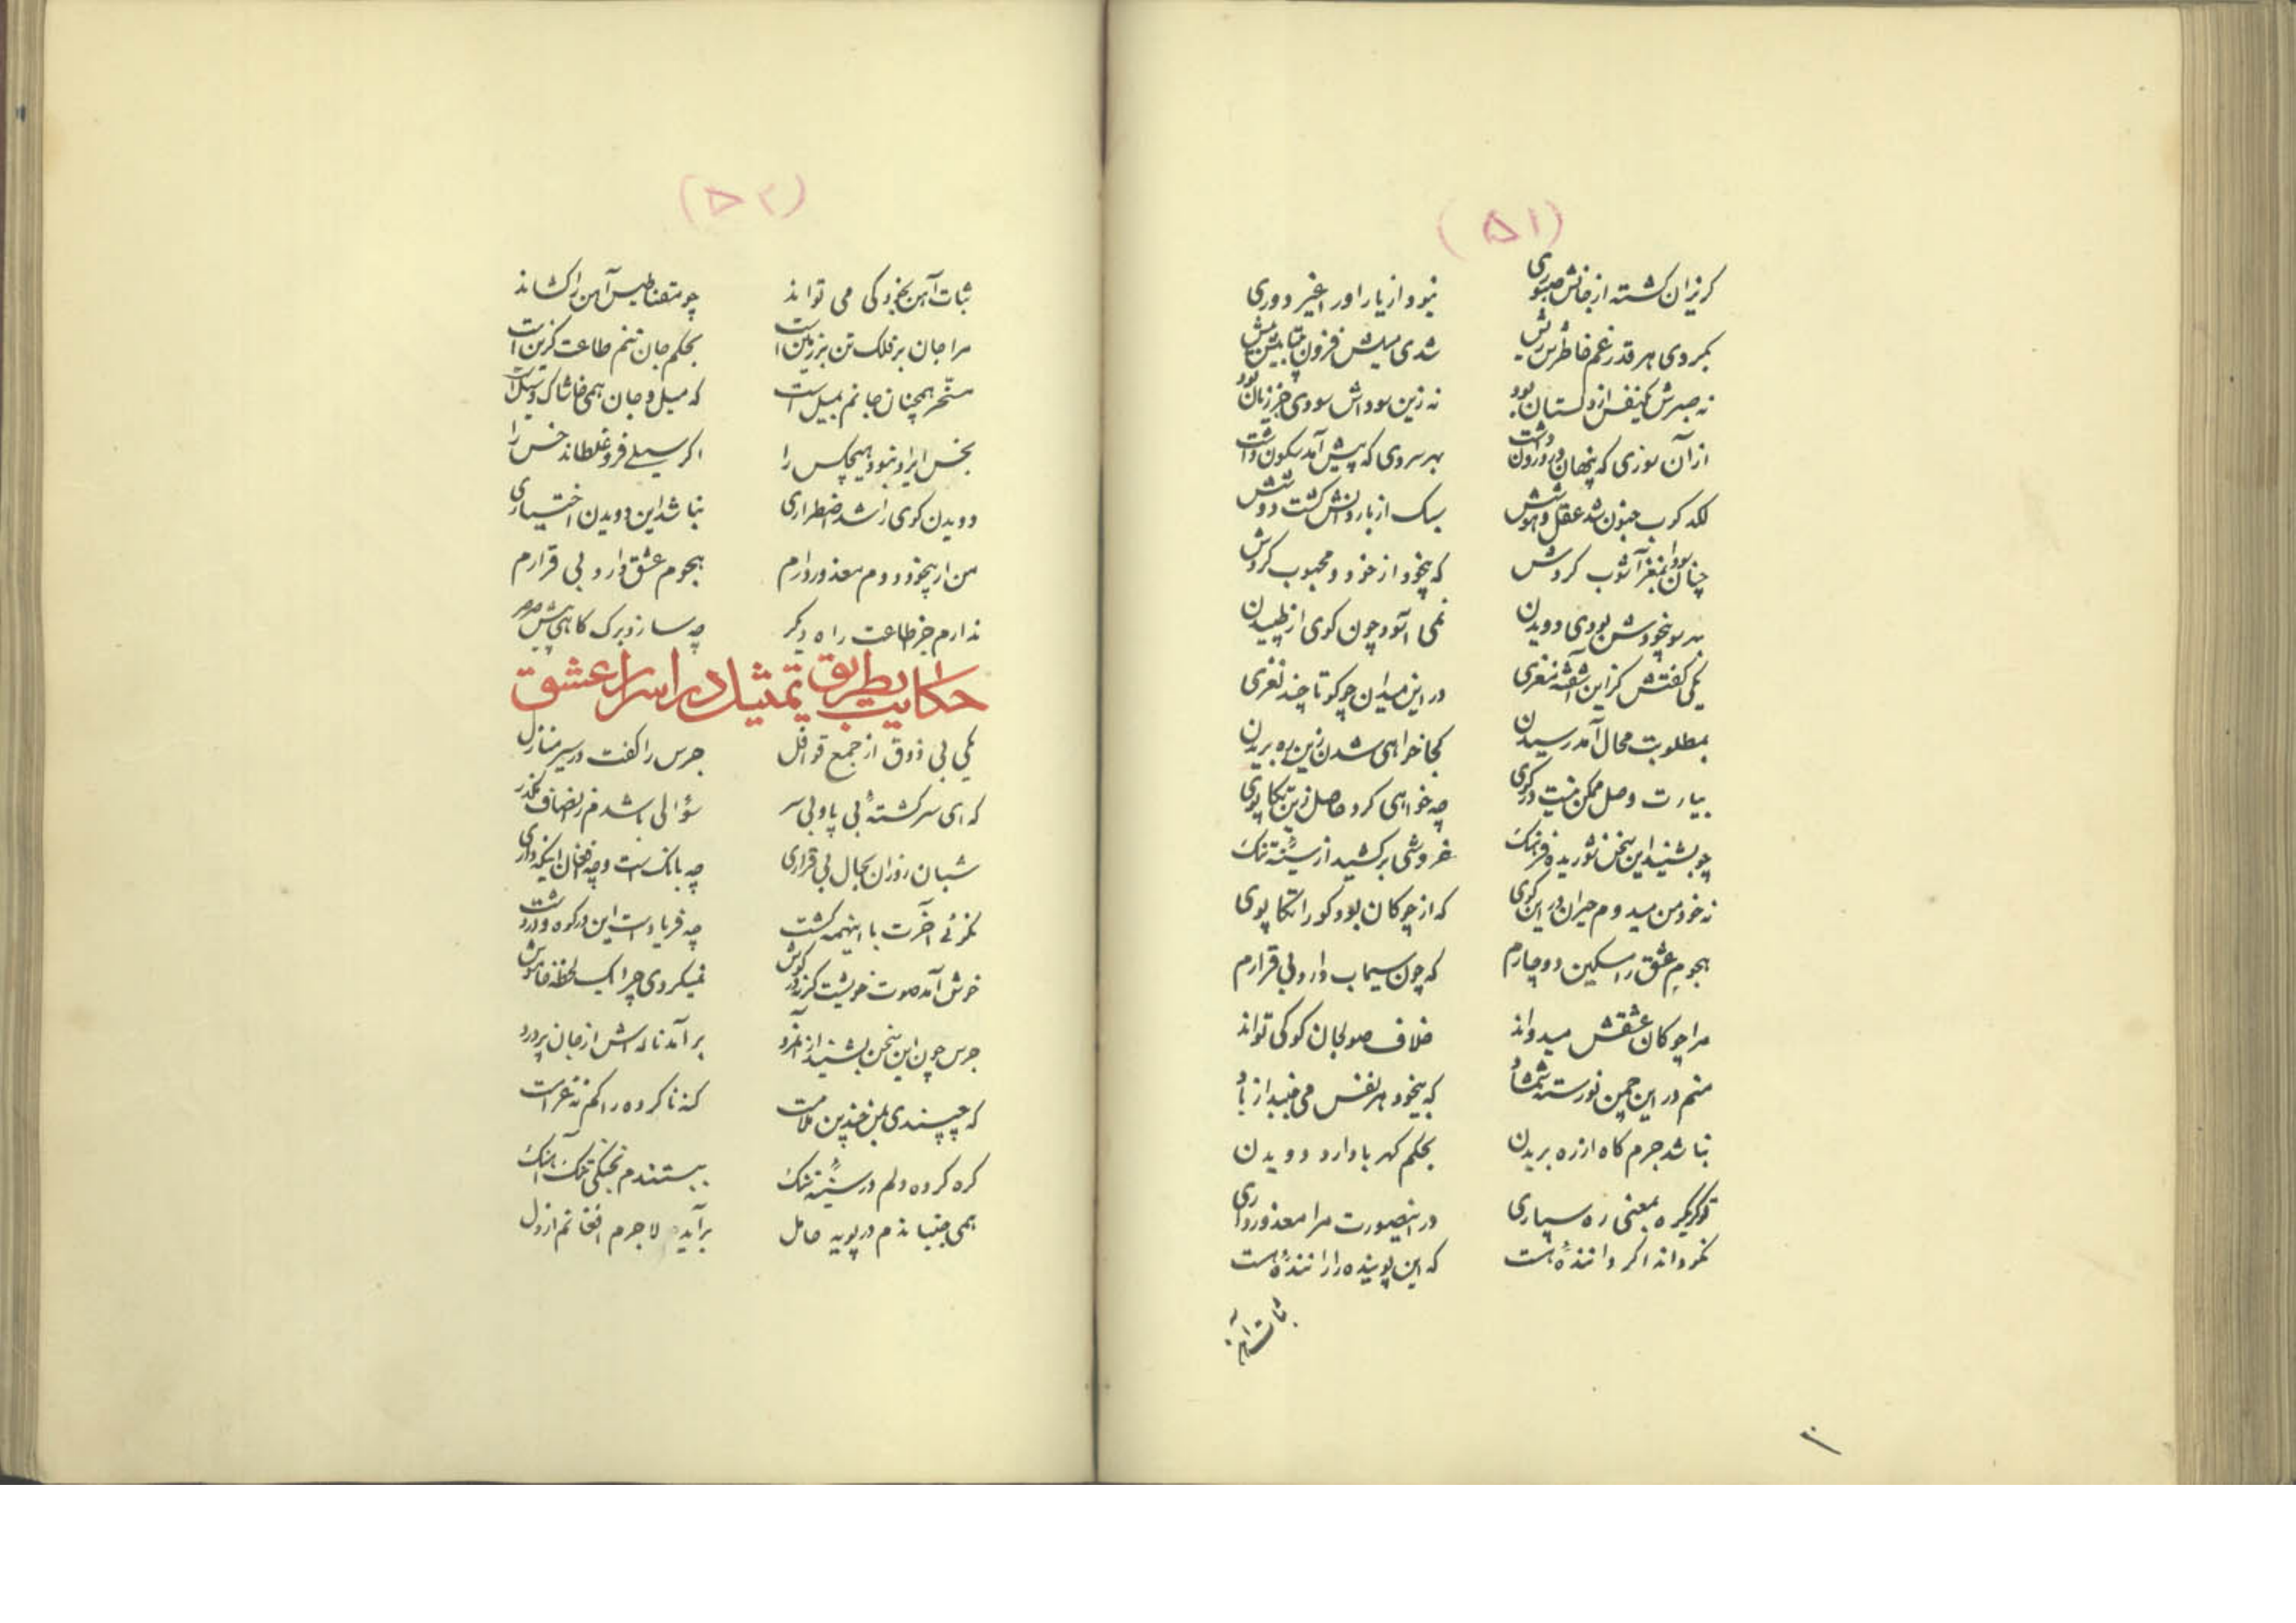 (۵۱)
گریزان گشته از جانش صبوری نبود از یار او را غیر دوری
بکردی هر قدر غم خاطرش ریش شدی میلش فزون بیتابیش بیش
نه صبرش یکنفس از دلستان بود نه زین سوداش سودی جز زیان بود
از آن سوزی که پنهان در درون داشت بهر سروی که پیش آمد سکون داشت
لگدکوب جنون شد عقل و هوشش سبک از بار دانش گشت دوشش
چنان سودا بمغز آشوب کردش که بیخود از خود و محبوب کردش
بهر سو بیخودش بودی دویدن نمی آسود چون گوی از طپیدن
یکی گفتش کزاین آشفته مغزی در این میدان چو گو تا چند لغزی
بمطلوبت محال آمد رسیدن کجا خواهی شدن زین ره بریدن
بیارت وصل ممکن نیست در کوی چه خواهی کرد حاصل زین تکاپوی
چو بشنید این سخن شوریده فرهنگ خروشی برکشید از سینهٔ تنگ
نه خود من میدوم حیران در این کوی که از چوگان بود گو را تکاپوی
هجوم عشق را مسکین دوچارم که چون سیماب دارد بی قرارم
مرا چوگان عشقش میدواند خلاف صولجان گو کی تواند
منم در این چمن نورسته شمشاد که بیخود هر نفس می جنبد از باد
نباشد جرم کاه ار ره بریدن بحکم کهربا دارد دویدن
تو گر یکره بمعنی ره سپاری در اینصورت مرا معذور داری
نکو داند اگر دانندهٔ هست که این پوینده را رانندهٔ هست
ثبات آهن
(۵۲)
ثبات آهن بخود کی می تواند چو مقناطیس آهن را کشاند
مرا جان بر فلک تن بر زمین است بحکم جان تنم طاعت گزین است
مسخر همچنان جانم بمیل است که میل و جان همی خاشاک و سیل است
بخس ایراد نبود هیچکس را اگر سیلی فرو غلطاند خس را
دویدن گوی را شد اضطراری نباشد این دویدن اختیاری
من ار بیخود دوم معذور دارم هجوم عشق دارد بی قرارم
ندارم جز طاعت راه دیگر چه سازد برگ کاهی پیش صرصر
حکایت بطریق تمثیل در اسرار عشق
یکی بی ذوق از جمع قوافل جرس را گفت در سیر منازل
که ای سرگشتهٔ بی پا و بی سر سؤالی باشدم ز انصاف مگذر
شبان روزان بحال بی قراری چه بانگ است و چه فغان اینکه داری
نگوئی آخرت با اینهمه گشت چه فریاد است این در کوه و در دشت
خوش آمد صوت خویشت گر نه در گوش نمیگردی چرا یک لحظه خاموش
جرس چون این سخن بشنید از آنمرد برآمد ناله اش از جان پر درد
که چپسندی بمن چندین ملامت گنه ناکرده را کم نه غرامت
گره کرده دلم در سینهٔ تنگ ببستندم بچنگی تنگ آهنگ
همی جنبانندم در پویه حامل برآید لاجرم افغانم از دل